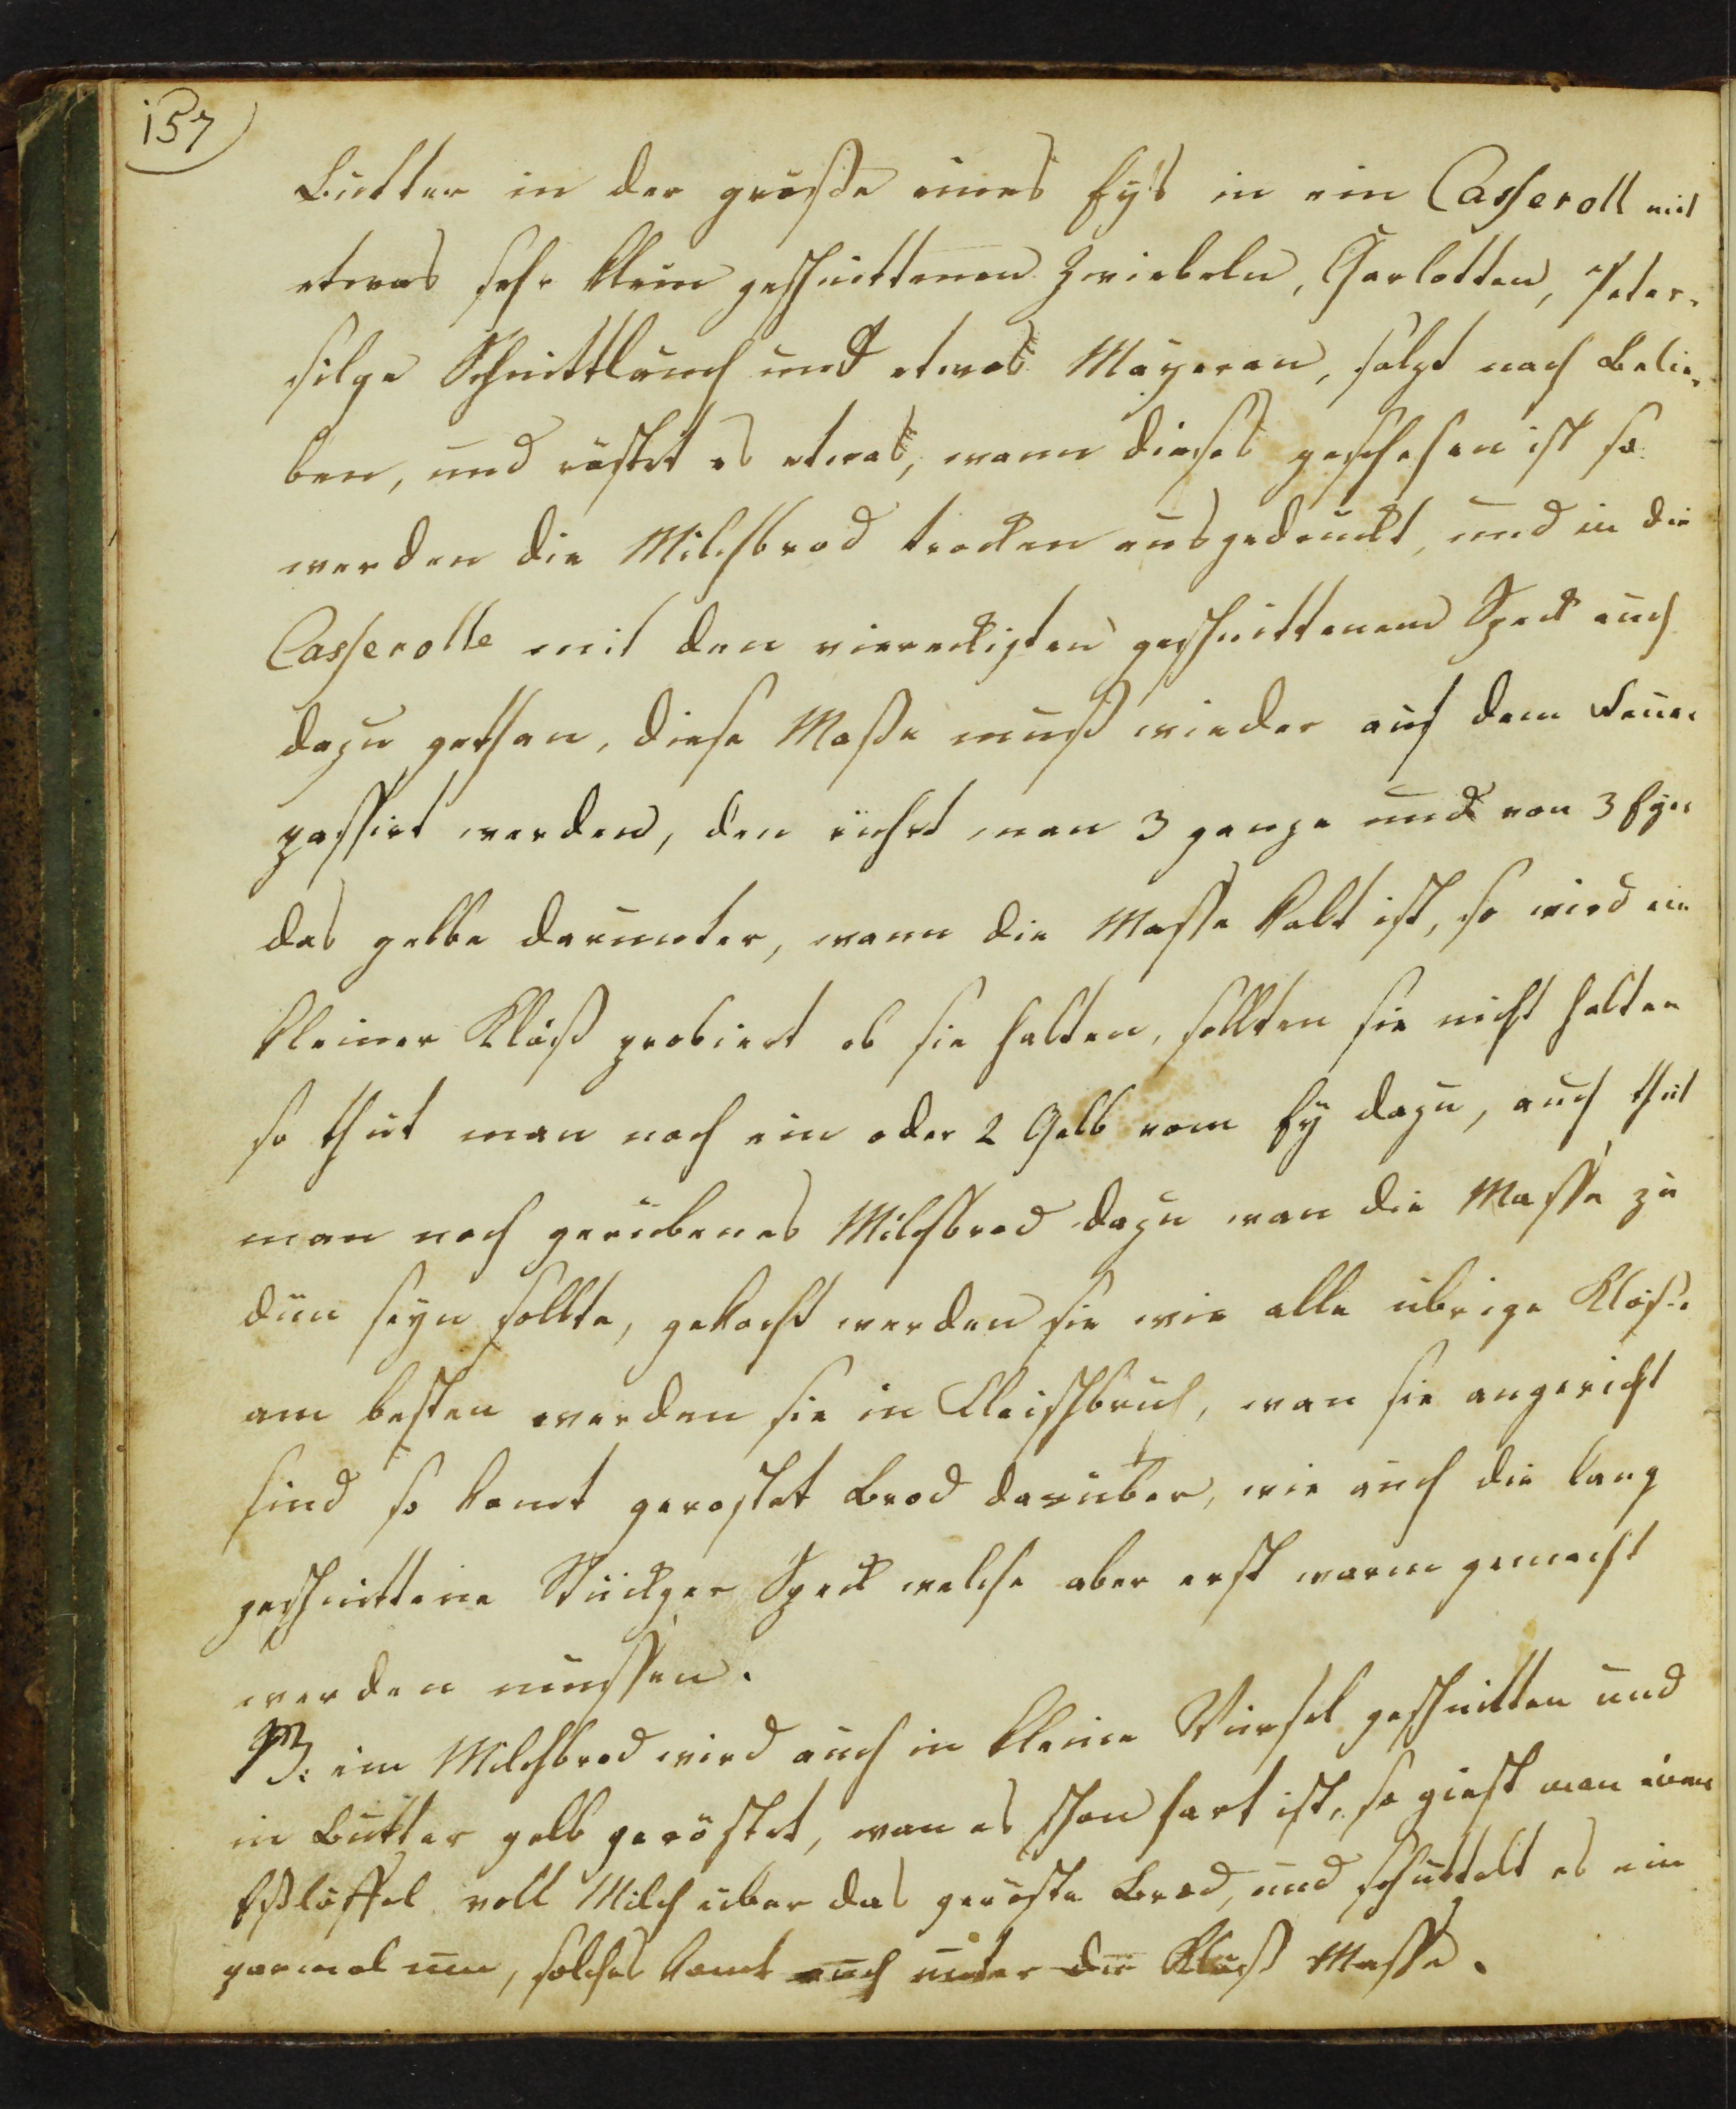 157
Butter in der größe eines Eys in ein Casseroll mit
etwas sehr klein geschnittenen Zwiebeln, Garlotten, Peter-
silge Schnittlauch und etwas Mayeran, salzt nach Belie-
ben, und röstet es etwas, wann dieses geschehen ist so
werden die Milchbrod trocken ausgedruckt, und in die
Casserolle mit den viereckigten geschnittenen Speck auch
dazu gethan, diese Maße muß wieder auf dem Feuer
passirt werden, den rührt man 3 ganze und von 3 Eyer
das gelbe darunter, wann die Masse kalt ist, so wird ein
kleiner Klöß probiert ob sie halten, sollten sie nicht halten
so thut man noch ein oder 2 Gelb vom Ey dazu, auch thut
man noch geriebenes Milchbrod dazu wan die Masse zu
dün seyn sollte, gekocht werden sie wie alle übrige Klöse
am besten werden sie in Fleischbrüh, wan sie angericht
sind so komt gerostet Brod darüber, wie auch die lang
geschnittene Stückger Speck welche aber erst warm gemacht
werden mussen.
NB. ein Milchbrod wird auch in kleine Würfel geschnitten und
in Butter gelb geröstet, wan es schon hart ist, so giest man einen
Eßlöffel voll Milch über das geröste Brod, und schüttelt es ein
parmal um, solches komt auch unter die Klöß Masse.